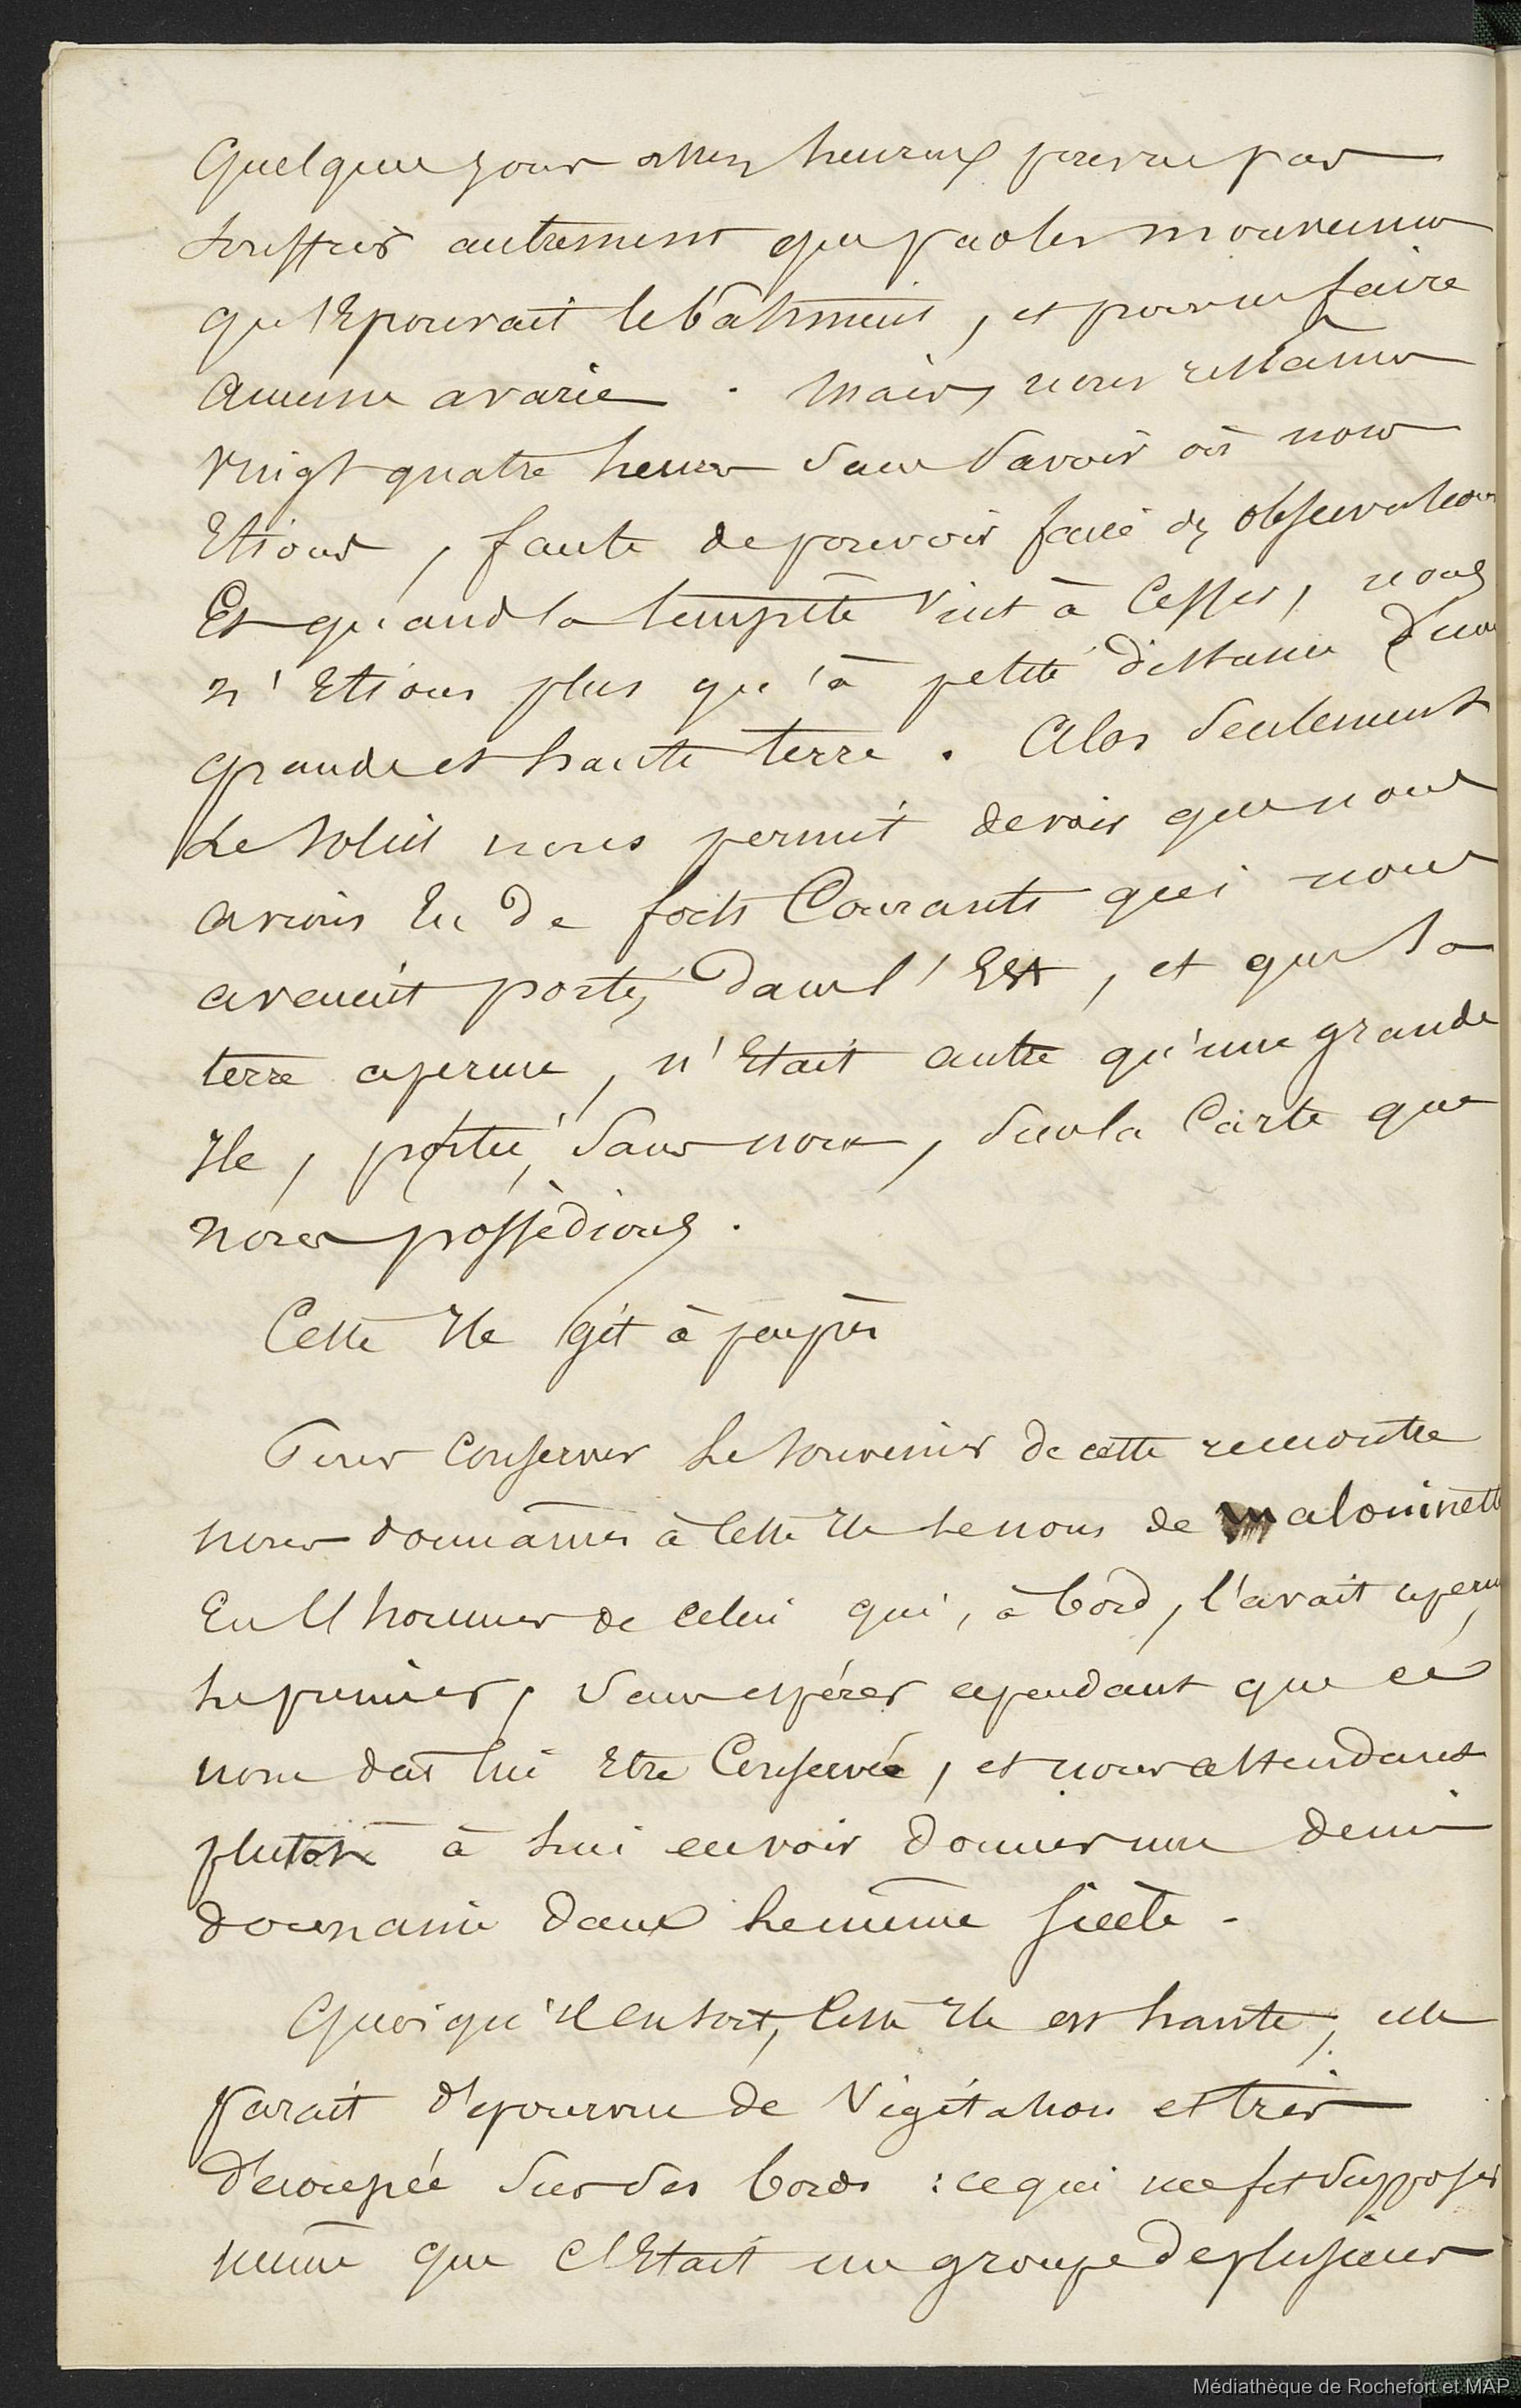 Quelques jours assez heureux pour ne pas
souffrir autrement que par les mouvemens
qu'Eprouvait le bâtiment, et pour ne faire
aucune avarie. Mais, nous restames
vingt quatre heures sans savoir où nous
Etions, faute de pouvoir faire des observations
Et quand la tempête vint à cesser, nous
n'Etions plus qu'à petite distance d'une
grande et haute terre. Alors seulement
Le soleil nous permit de voir que nous
avions Eu de forts Courants qui nous
avaient portés dans l'Est, et que la
terre aperçue, n'Etait autre qu'une grande
Ile, portée, sans nom, sur la Carte que
nous possèdions.
Cette Ile git à peu près
Pour Conserver le souvenir de cette rencontre
nous donnâmes à Cette Ile le nom de malouinette
En l'honneur de celui qui, à bord, l'avait aperçu
le premier, sans espérer cependant que ce
nom dut lui Etre Conservé, et nous attendant
plutôt à lui en voir donner une demi
douzaine dans le même siècle.
Quoiqu'il en soit, Cette Ile est haute, elle
parait dépourvue de Végétation et très
découpée sur ses bords : ce qui me fit supposer
même que c'Etait un groupe de plusieurs
Médiathèque de Rochefort et MAP